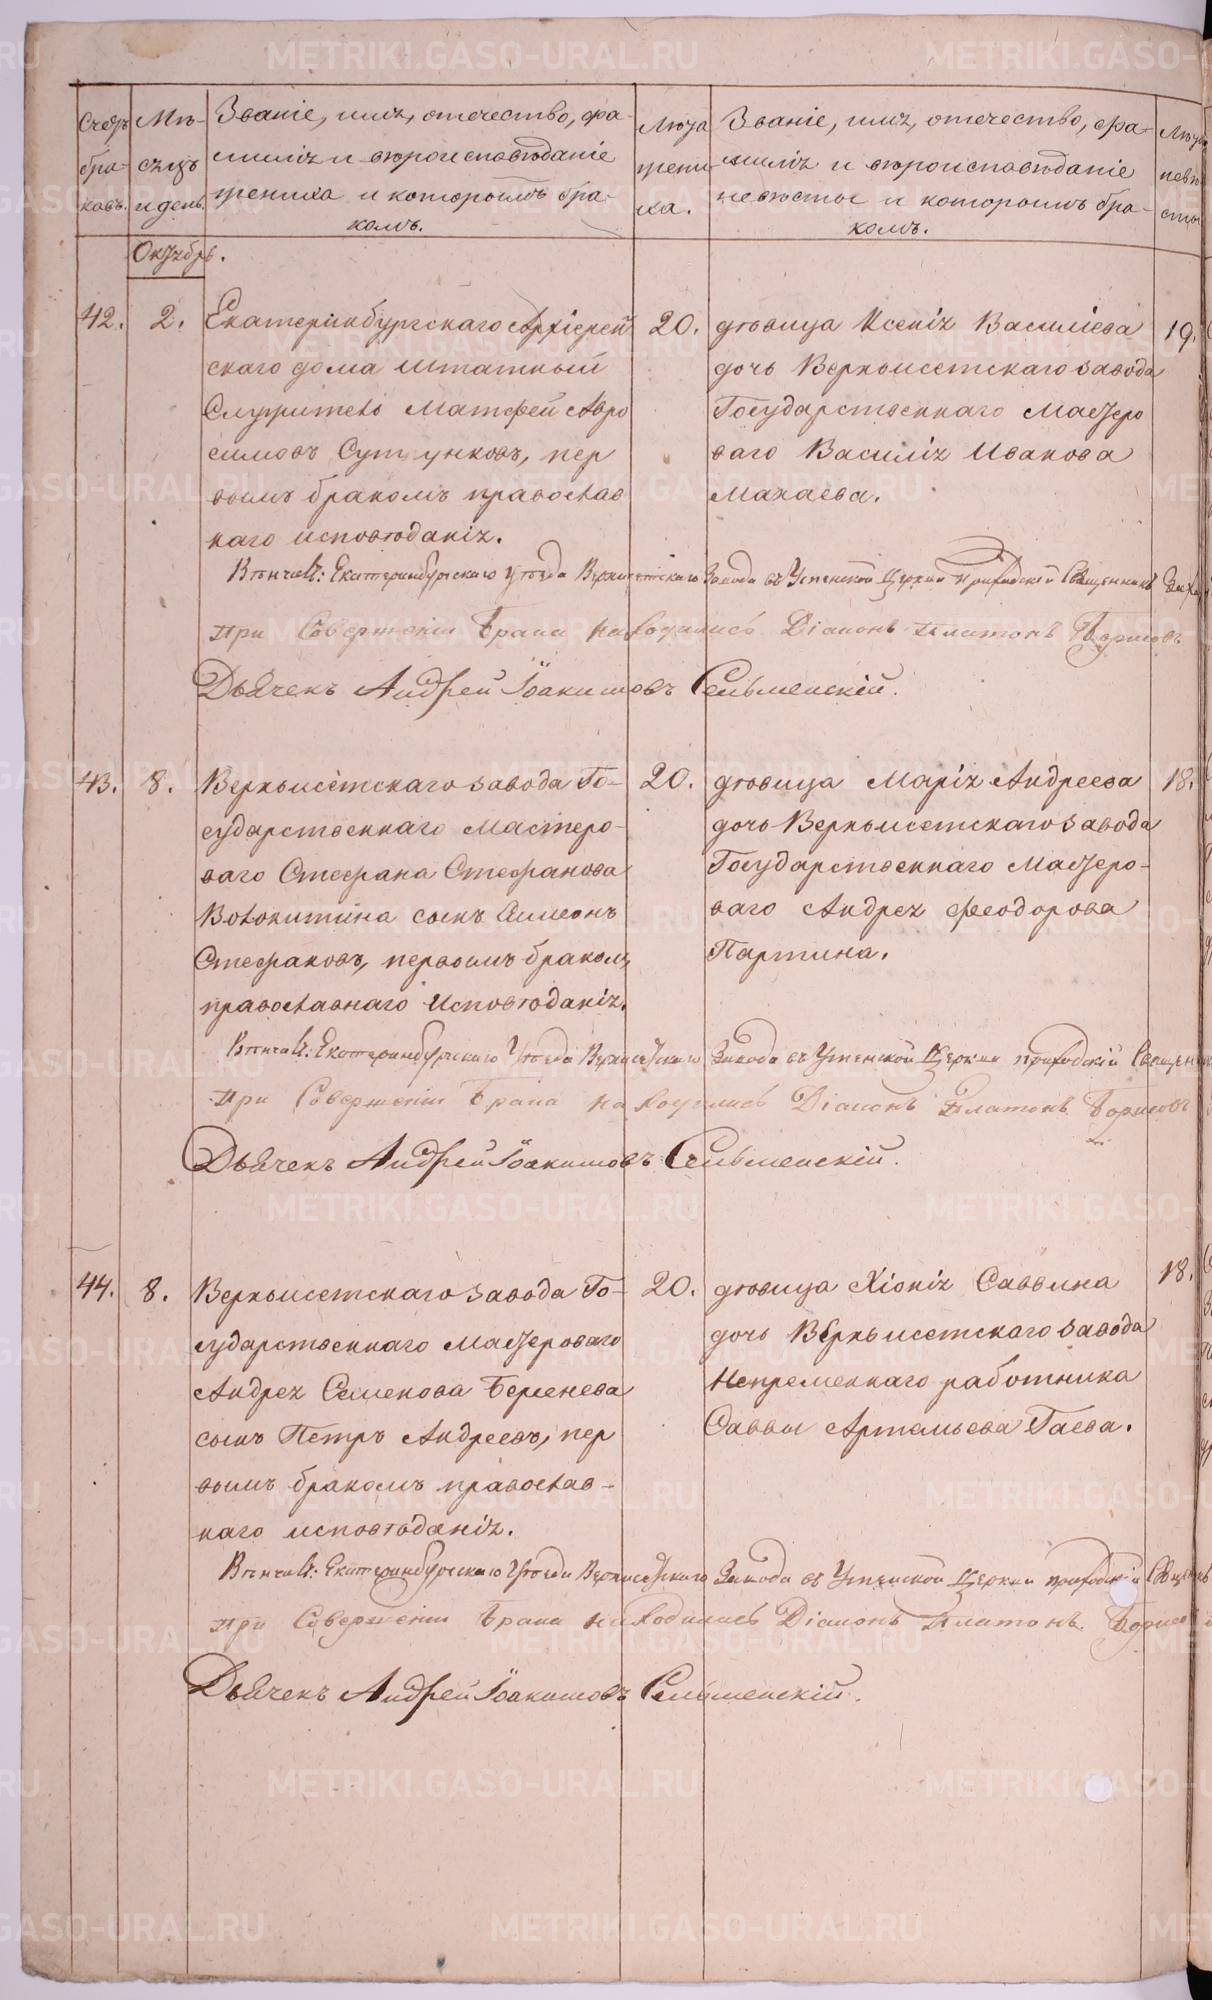 Счетъ браковъ.
Мѣсяцъ и день.
Званіе, имя, отечество, фамилія и вѣроисповѣданіе жениха и которымъ бракомъ.
Лѣта жениха.
Званіе, имя, отечество, фамилія и вѣроисповѣданіе невѣсты и которымъ бракомъ.
Лѣта невѣсты
Октябрь.
42.
2.
Екатеринбургскаго Архіерей
скаго дома штатный
Служитель Матфей Авро
симовъ Сутунковъ, пер
вымъ бракомъ православ
наго исповѣданія.
20.
дѣвица Ксенія Василіева
дочь Верхъисетскаго завода
Государственнаго Мастеро
ваго Василія Иванова
Махаева.
19.
Вѣнчалъ: Екатеринбургскаго уѣзда Верхисетскаго Завода въ Успенской Церкви приходскій Священникъ
При Совершеніи Брака находились Діаконъ Платонъ Борисовъ
Дьячекъ Андрей Іоакимовъ Сельменскій.
43.
8.
Верхъисетскаго завода Го-
сударственнаго Мастеро-
ваго Стефана Стефанова
Волокитина сынъ Симеонъ
Стефановъ, первымъ бракомъ,
православнаго Исповѣданія.
20.
дѣвица Марія Андреева
дочь Верхъисетскаго завода
Государственнаго Мастеро-
ваго Андрея Феодорова
Партина.
18.
Вѣнчалъ: Екатеринбургскаго Уѣзда Верхисетскаго Завода въ Успенской Церкви приходскій Священ
При Совершеніи Брака находились Діаконъ Платонъ Борисовъ
Дьячекъ Андрей Іоакимовъ Сельменскій.
44.
8.
Верхъисетскаго завода Го-
сударственнаго Мастероваго
Андрея Семенова Беренева
сынъ Петръ Андреевъ, пер
вымъ бракомъ православ-
наго исповѣданія.
20.
дѣвица Хіонія Саввина
дочь Верхъисетскаго завода
Непременнаго работника
Саввы Артемьева Гаева.
18.
Вѣнчалъ: Екатеринбургскаго Уѣзда Верхисетскаго Завода въ Успенской Церкви приходскій
При Совершеніи Брака находились Діаконъ Платонъ Борисовъ
Дьячекъ Андрей Іоакимовъ Сельменскій.
METRIKI.GASO-URAL.RU